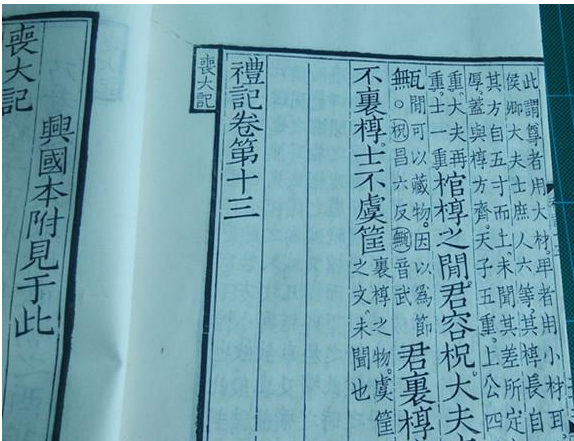 此謂尊者用大材。卑者用小材耳。
侯卿大夫士庶人六等。其椁長自
其方自五寸而上。未聞其差所定
厚。蓋與椁方齊。天子五重。上公四
重。大夫再
重。士一重
棺椁之閒。君容柷。大夫
甒
閒可以藏物。因以爲節
○柷昌六反甒音武
君裏椁
不裏椁。士不虞筐
裏椁之物。虞筐
之文。未聞也
禮記卷第十三
喪大記
興國本附見于此
喪大記